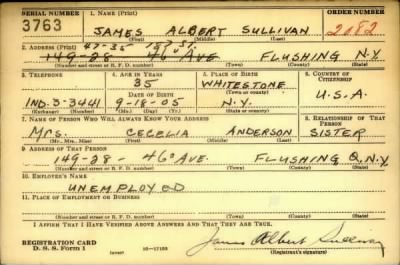 SERIAL NUMBER 1. NAME (Print) ORDER NUMBER
3763 JAMES ALBERT SULLIVAN 2182
(First) (Middle) (Last)
47-35 157 ST.
2. ADDRESS (Print)
149-28 46 AVE FLUSHING N.Y.
(Number and street or R. F. D. number) (Town) (County) (State)
3. TELEPHONE 4. AGE IN YEARS 5. PLACE OF BIRTH 6. COUNTRY OF CITIZENSHIP
35 WHITESTONE
DATE OF BIRTH (Town or county) U.S.A.
IND. 3-3441 9-18-05 N.Y.
(Exchange) (Number) (Mo.) (Day) (Yr.) (State or country)
7. NAME OF PERSON WHO WILL ALWAYS KNOW YOUR ADDRESS 8. RELATIONSHIP OF THAT PERSON
MRS. CECELIA ANDERSON SISTER
(Mr., Mrs., Miss) (First) (Middle) (Last)
9. ADDRESS OF THAT PERSON
149-28 - 46 AVE. FLUSHING Q. N.Y.
(Number and street or R. F. D. number) (Town) (County) (State)
10. EMPLOYER'S NAME
UNEMPLOYED
11. PLACE OF EMPLOYMENT OR BUSINESS
(Number and street or R. F. D. number) (Town) (County) (State)
I AFFIRM THAT I HAVE VERIFIED ABOVE ANSWERS AND THAT THEY ARE TRUE.
REGISTRATION CARD James Albert Sullivan
D. S. S. Form 1 (over) 16-17105